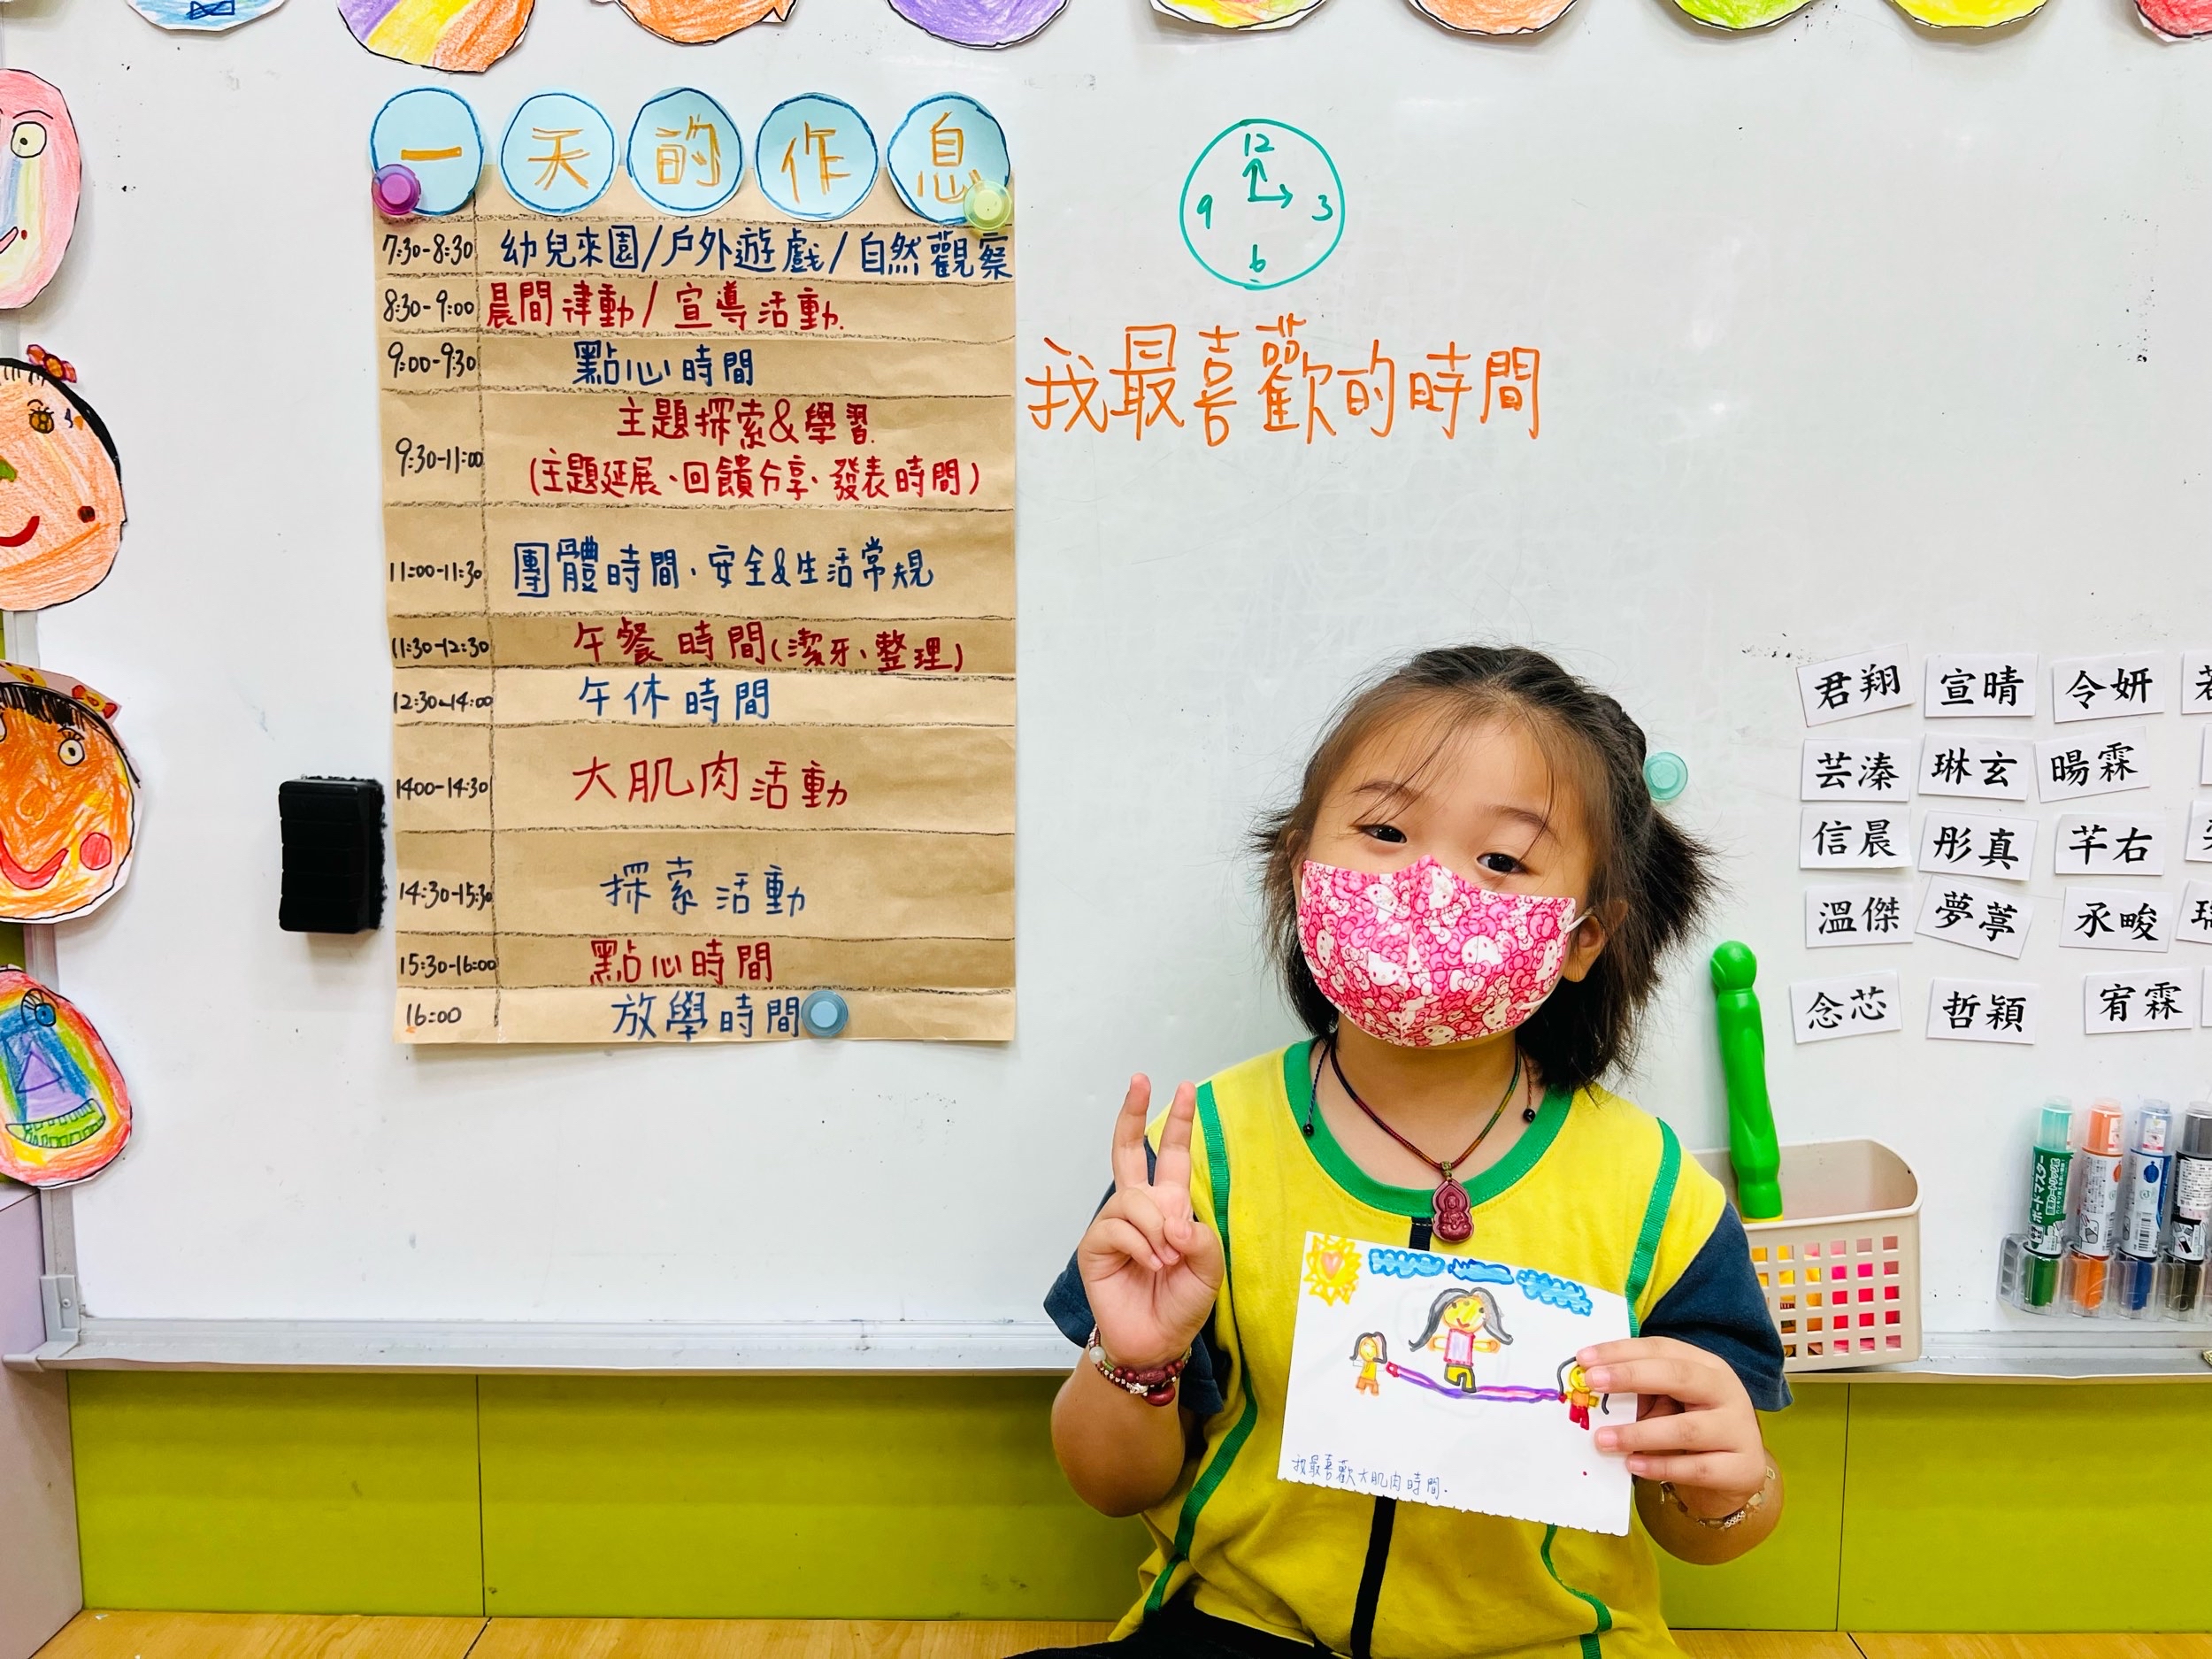 一天的作息
7:30-8:30 幼兒來園/戶外遊戲/自然觀察
8:30-9:00 晨間律動/宣導活動.
9:00-9:30 點心時間
9:30-11:00 主題探索&學習.
(主題延展、回饋分享、發表時間)
11:00-11:30 團體時間、安全&生活常規
11:30-12:30 午餐時間(潔牙、整理)
12:30-14:00 午休時間
1400-14:30 大肌肉活動
14:30-15:30 探索活動
15:30-16:00 點心時間
16:00 放學時間
12
9 3
6
我最喜歡的時間
君翔 宣晴 令妍
芸溱 琳玄 暘霖
信晨 彤真 芊右
溫傑 夢葶 承畯
念芯 哲穎 宥霖
我最喜歡大肌肉時間.
ボードマスター